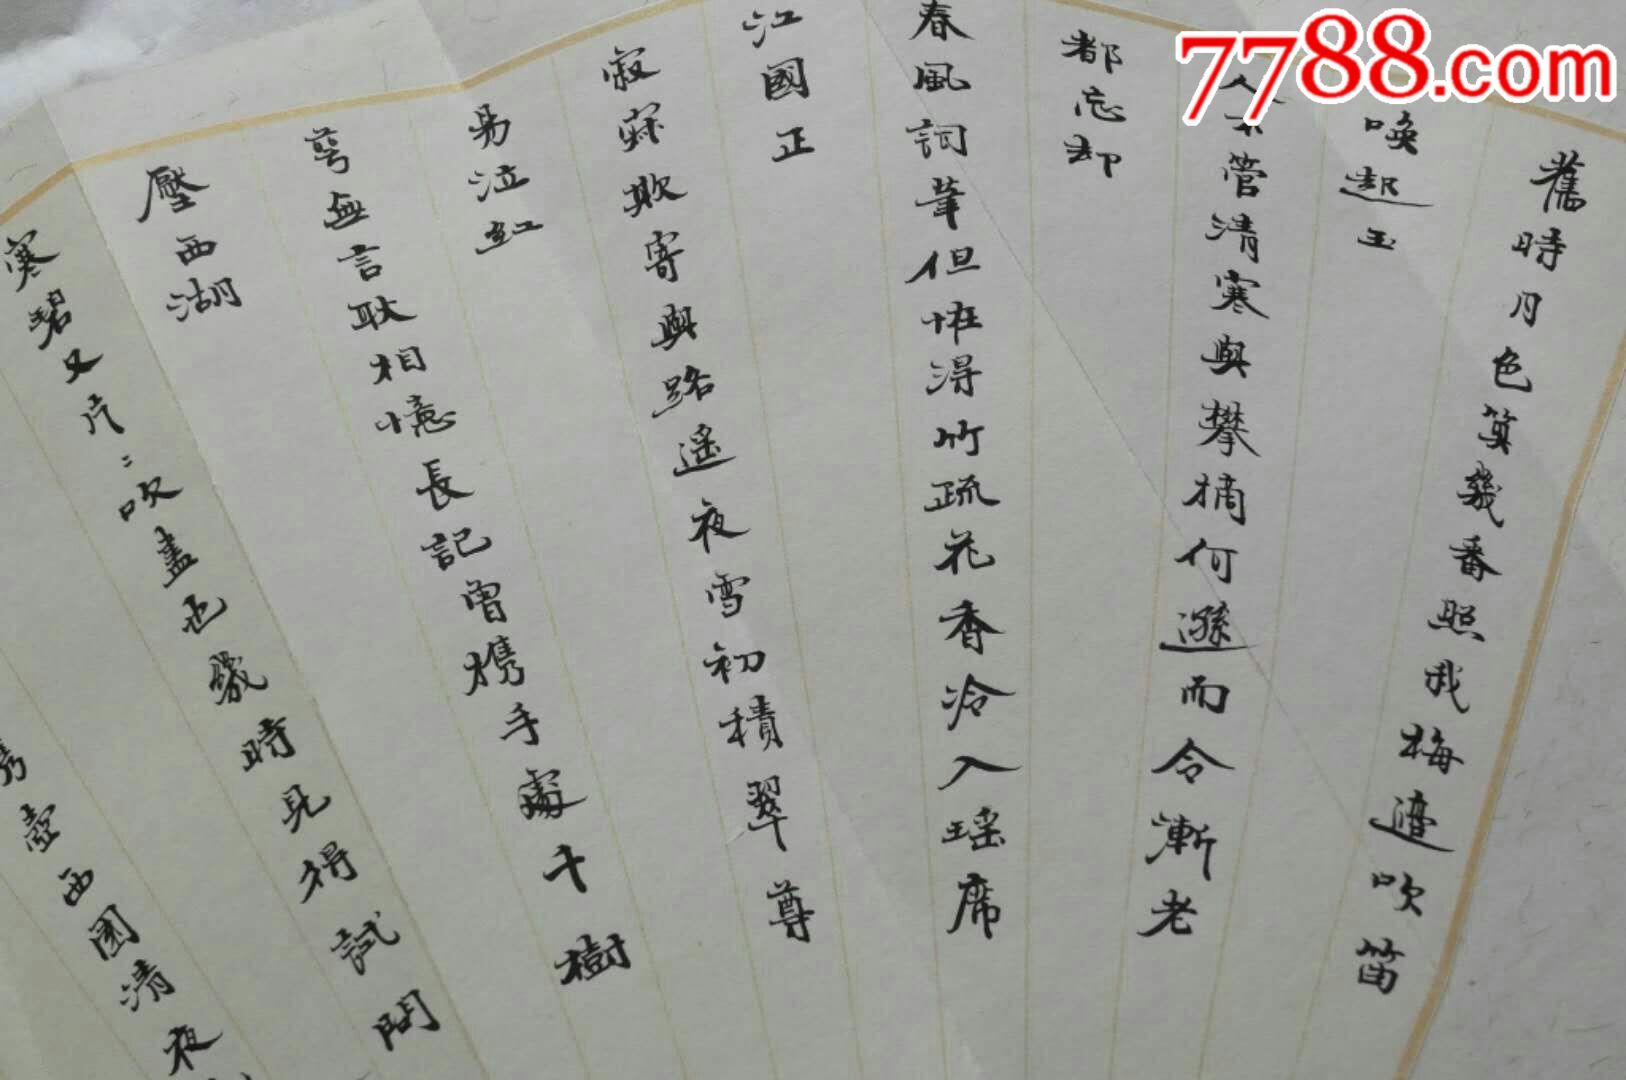 7788.com
舊時月色算幾番照我梅邊吹笛
喚起玉
人不管清寒與攀摘何遜而今漸老
都忘却
春風詞筆但恠得竹疏花香冷入瑶席
江國正
寂寂歎寄與路遥夜雪初積翠尊
易泣紅
萼無言耿相憶長記曾携手處千樹
壓西湖
寒碧又片:吹盡也幾時見得試問
壺西園清夜